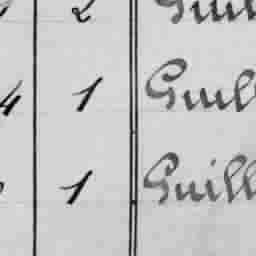 2 Guil
4 1 Guil
1 Guill